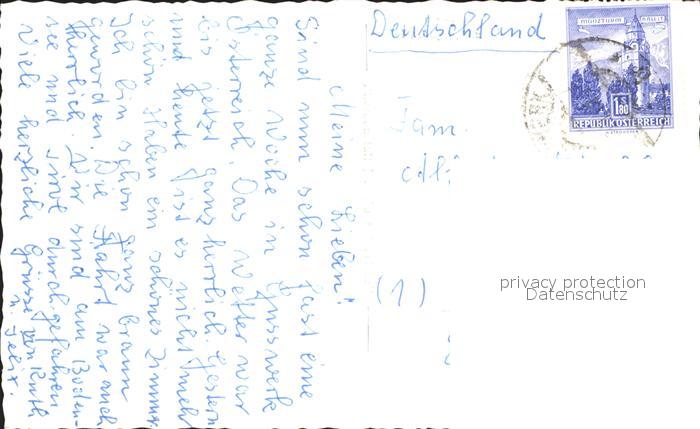 Meine Lieben!
Sind nun schon fast eine
ganze Woche in
Österreich. Das Wetter war
bis jetzt ganz herrlich. Gestern
und heute ist es nicht mehr
schön. Haben ein schönes Zimmer
Ich bin schon ganz braun
geworden. Die Fahrt war auch
herrlich. Wir sind am Boden-
see und durchgefahren
Viele herzliche Grüsse von Ruth
u. Felix.
Deutschland
Fam.
(1)
MÜNZTURM HALL I.T.
S 1.80
REPUBLIK ÖSTERREICH
privacy protection
Datenschutz